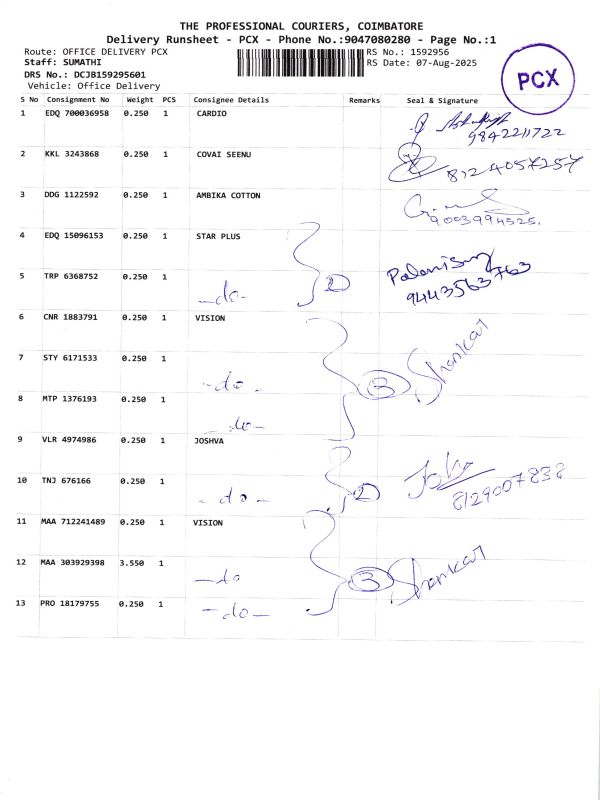 THE PROFESSIONAL COURIERS, COIMBATORE
Delivery Runsheet - PCX - Phone No.:9047080280 - Page No.:1
Route: OFFICE DELIVERY PCX RS No.: 1592956
Staff: SUMATHI RS Date: 07-Aug-2025
DRS No.: DCJB159295601
Vehicle: Office Delivery
PCX
S No Consignment No Weight PCS Consignee Details Remarks Seal & Signature
1 EDQ 700036958 0.250 1 CARDIO
9842211722
2 KKL 3243868 0.250 1 COVAI SEENU
8124057257
3 DDG 1122592 0.250 1 AMBIKA COTTON
9003994525.
4 EDQ 15096153 0.250 1 STAR PLUS
5 TRP 6368752 0.250 1 -do- 2 9443563763
6 CNR 1883791 0.250 1 VISION
7 STY 6171533 0.250 1 -do- 3 Shankar
8 MTP 1376193 0.250 1 -do-
9 VLR 4974986 0.250 1 JOSHVA
10 TNJ 676166 0.250 1 -do- 2 8129007838
11 MAA 712241489 0.250 1 VISION
12 MAA 303929398 3.550 1 -do 3 Shankar
13 PRO 18179755 0.250 1 -do-